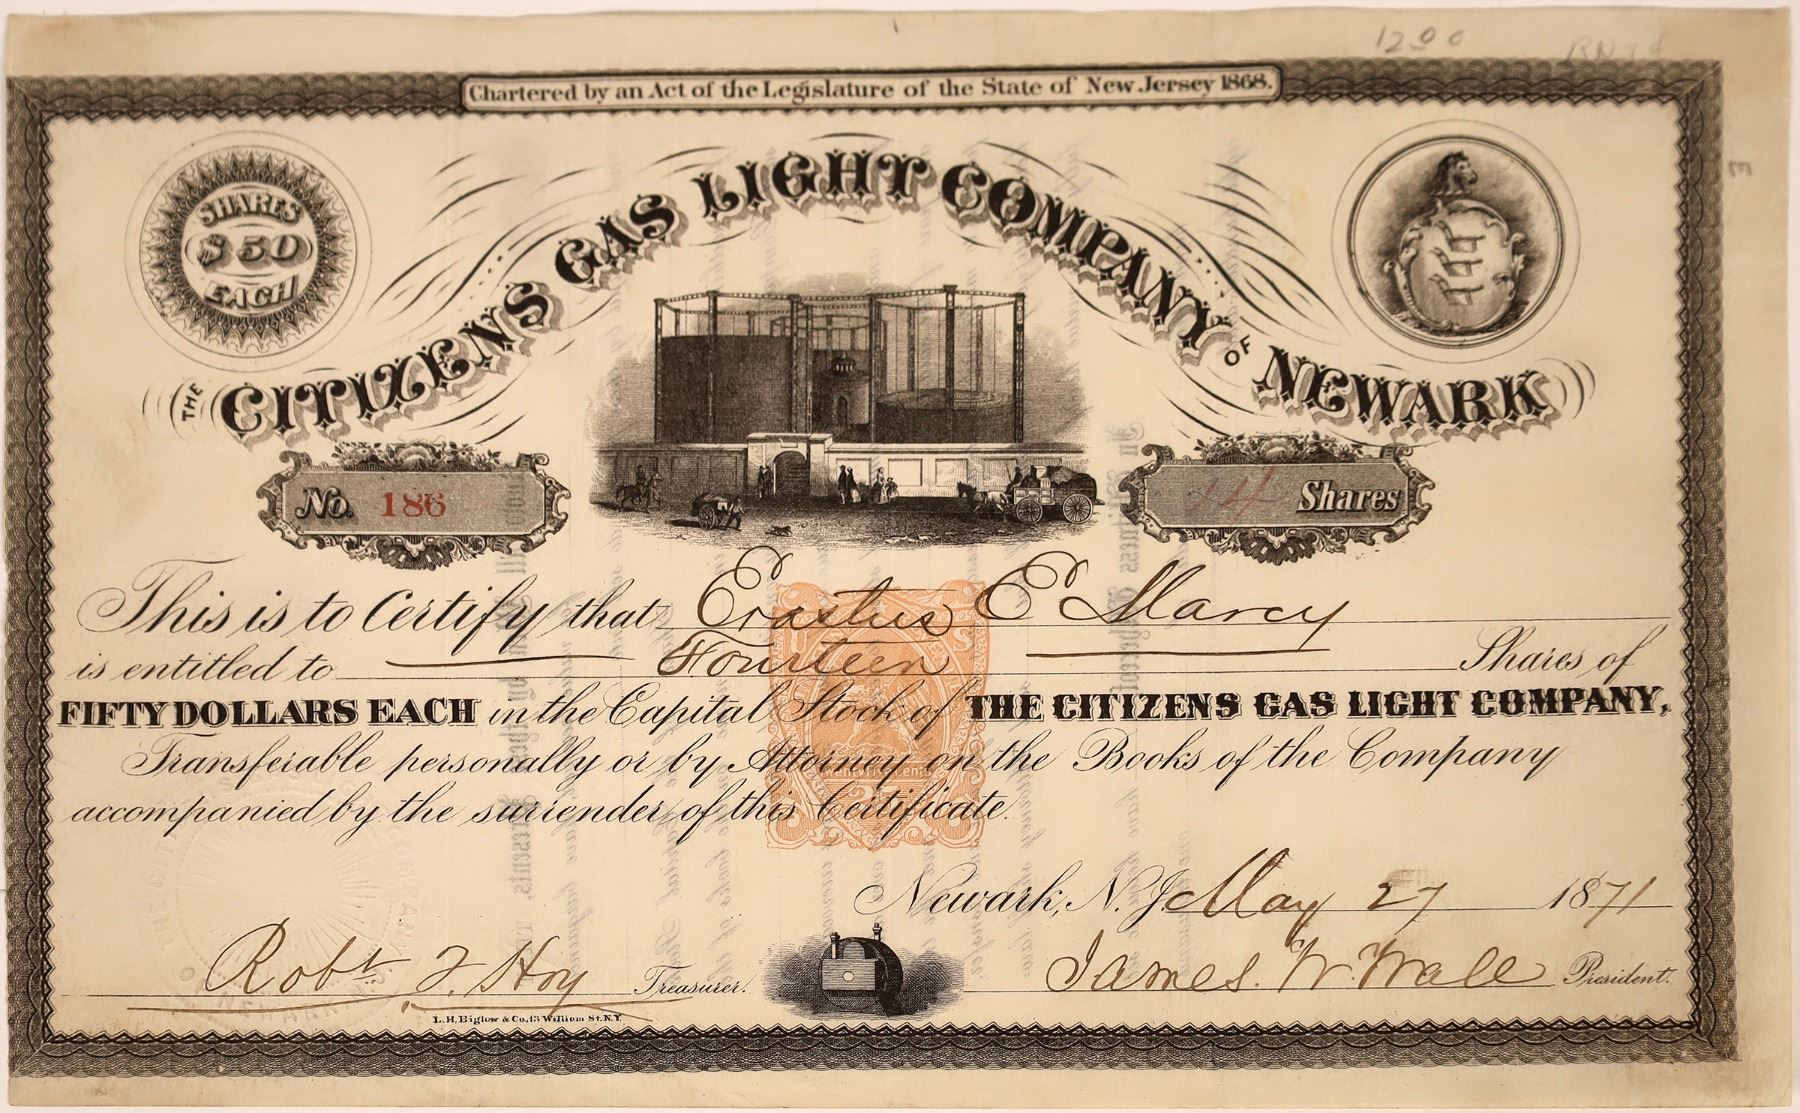 1200
RN-T4
Chartered by an Act of the Legislature of the State of New Jersey 1868.
SHARES
$50
EACH
THE CITIZENS GAS LIGHT COMPANY OF NEWARK
No. 186
14 Shares
This is to Certify that Erastus E Marcy
is entitled to Fourteen Shares of
FIFTY DOLLARS EACH in the Capital Stock of THE CITIZENS GAS LIGHT COMPANY,
Transferable personally or by Attorney on the Books of the Company
accompanied by the surrender of this Certificate.
Newark, N. J. May 27 1871
Robt F. Hoy Treasurer.
James. W. Wall President.
L.H. Biglow & Co. 13 William St. N.Y.